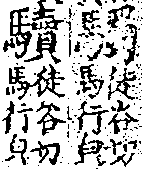 徒谷切
馬行皃
徒谷切
馬行皃